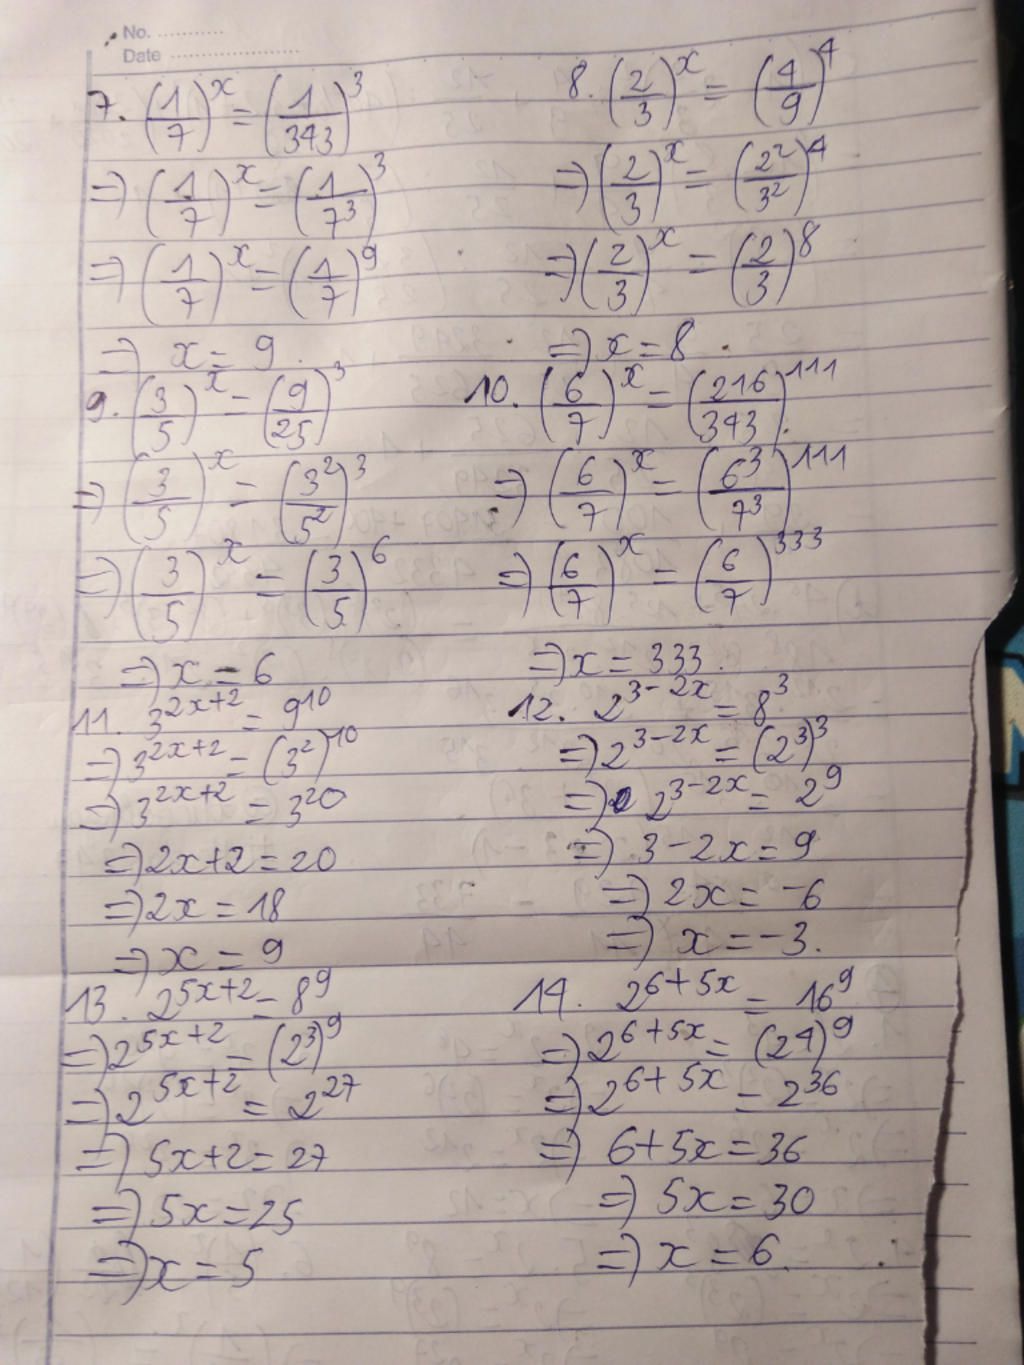 No. ...........
Date ......................
7. (1/7)^x = (1/343)^3
⇒ (1/7)^x = (1/7^3)^3
⇒ (1/7)^x = (1/7)^9
⇒ x = 9.
8. (2/3)^x = (4/9)^4
⇒ (2/3)^x = (2^2/3^2)^4
⇒ (2/3)^x = (2/3)^8
⇒ x = 8.
9. (3/5)^x = (9/25)^3
⇒ (3/5)^x = (3^2/5^2)^3
⇒ (3/5)^x = (3/5)^6
⇒ x = 6
10. (6/7)^x = (216/343)^111.
⇒ (6/7)^x = (6^3/7^3)^111
⇒ (6/7)^x = (6/7)^333
⇒ x = 333.
11. 3^2x+2 = 9^10
⇒ 3^2x+2 = (3^2)^10
⇒ 3^2x+2 = 3^20
⇒ 2x+2 = 20
⇒ 2x = 18
⇒ x = 9
12. 2^3-2x = 8^3
⇒ 2^3-2x = (2^3)^3
⇒ 2^3-2x = 2^9
⇒ 3-2x = 9
⇒ 2x = -6
⇒ x = -3.
13. 2^5x+2 = 8^9
⇒ 2^5x+2 = (2^3)^9
⇒ 2^5x+2 = 2^27
⇒ 5x+2 = 27
⇒ 5x = 25
⇒ x = 5
14. 2^6+5x = 16^9
⇒ 2^6+5x = (2^4)^9
⇒ 2^6+5x = 2^36
⇒ 6+5x = 36
⇒ 5x = 30
⇒ x = 6.